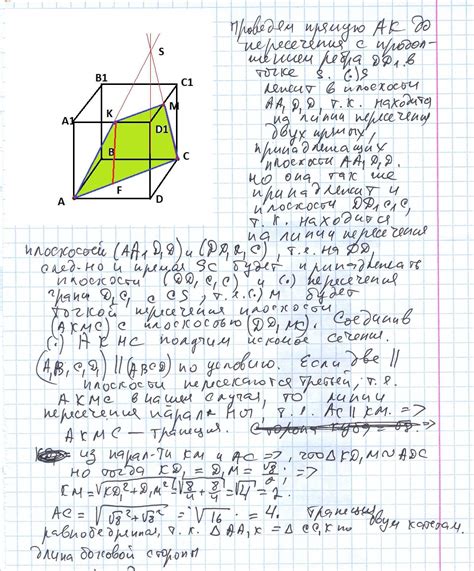 S
B1
C1
K
M
A1
D1
B
C
F
A
D
Проведём прямую АК до
пересечения с продол-
жением ребра DD₁ в
точке S. (·)S
лежит в плоскости
AA₁D₁D, т.к. находится
на линии пересечения
двух
принадлежащих
плоскости AA₁D₁D.
но она так же
принадлежит и
плоскости DD₁C₁C,
т.к. находится
на линии пересечения
плоскостей (AA₁D₁D) и (DD₁C₁C), т.е. на DD₁
след-но и прямая SC будет принадлежать
плоскости (DD₁C₁C) и (·) пересечения
грани D₁C₁ с CS, т.е. (·) M будет
точкой пересечения плоскости
(AKMC) с плоскостью (DD₁C). Соединив
(·) AKMC получим искомое сечение.
(A₁B₁C₁D₁) || (ABCD) по условию. Если две ||
плоскости пересекаются третьей, т.е.
AKMC в нашем случае, то линии
пересечения паралл-ны, т.е. AC || KM. =>
AKMC – трапеция.
из парал-ти KM и AC =>, что △KD₁M ∾ ADC
но тогда KD₁ = D₁M = √8/2 ; =>
KM = √KD₁² + D₁M² = √8/4 + 8/4 = √4 = 2.
AC = √√8² + √8² = √16 = 4. Трапеция
равнобедренная, т.к. △AA₁K = △CC₁K по двум катетам.
длина боковой стороны